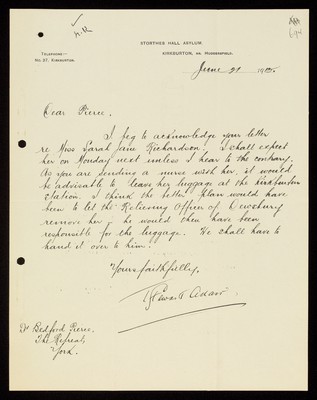 N.R
694
STORTHES HALL ASYLUM,
KIRKBURTON, NR. HUDDERSFIELD.
TELEPHONE—
NO. 27, KIRKBURTON.
June 21
Dear Pierce,
I beg to acknowledge your letter
re Miss Sarah Jane Richardson. I shall expect
her on Monday next unless I hear to the contrary.
As you are sending a nurse with her, it would
be advisable to leave her luggage at the Kirkburton
station. I think the better plan would have
been to let the Relieving Officer of Dewsbury
remove her – he would then have been
responsible for the luggage. He shall have to
hand it over to him.
Yours faithfully,
Adair
Dr Bedford Pierce,
The Retreat,
York.